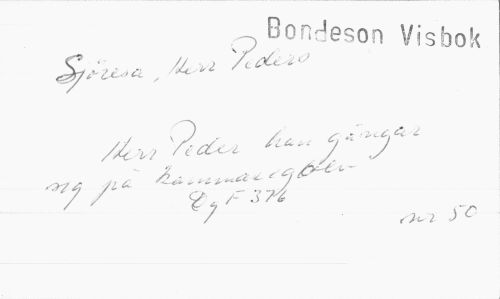 Bondeson Visbok
Sjöresa, Herr Peders
Herr Peder han gångar
sig på kammaregolv
DgF 376
nr 50